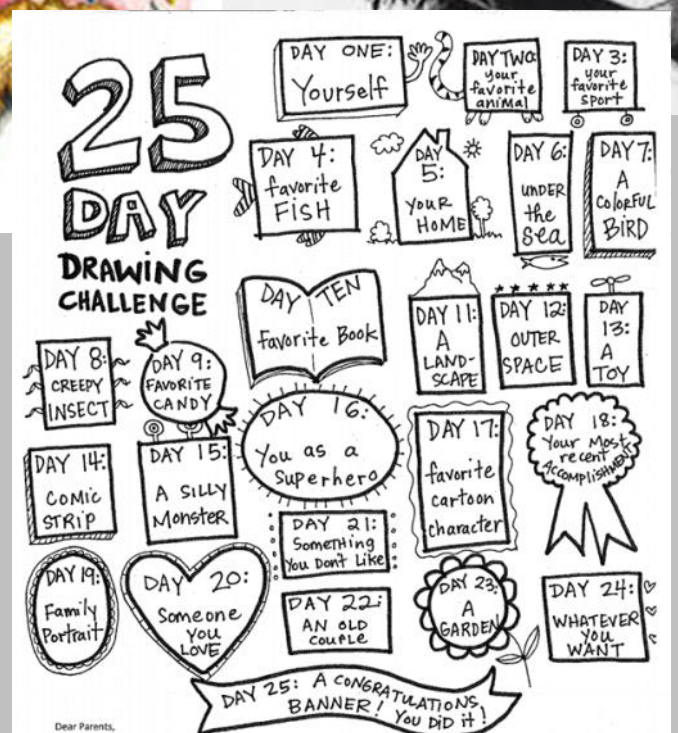 25
DAY
DRAWING
CHALLENGE
DAY ONE:
Yourself
DAY TWO:
your
favorite
animal
DAY 3:
your
favorite
sport
DAY 4:
favorite
FISH
DAY
5:
YOUR
HOME
DAY 6:
UNDER
the
sea
DAY 7:
A
COLORFUL
BIRD
DAY 8:
CREEPY
INSECT
DAY 9:
FAVORITE
CANDY
DAY TEN
Favorite Book
DAY 11:
A
LAND-
SCAPE
DAY 12:
OUTER
SPACE
DAY
13:
A
TOY
DAY 14:
COMIC
STRIP
DAY 15:
A SILLY
Monster
DAY 16:
You as a
Superhero
DAY 17:
favorite
cartoon
character
DAY 18:
Your Most
recent
ACCOMPLISHMENT
DAY 19:
Family
Portrait
DAY 20:
Someone
YOU
LOVE
DAY 21:
Something
You Don't Like
DAY 22:
AN OLD
COUPLE
DAY 23:
A
GARDEN
DAY 24:
WHATEVER
YOU
WANT
DAY 25: A CONGRATULATIONS
BANNER! YOU DID it!
Dear Parents,